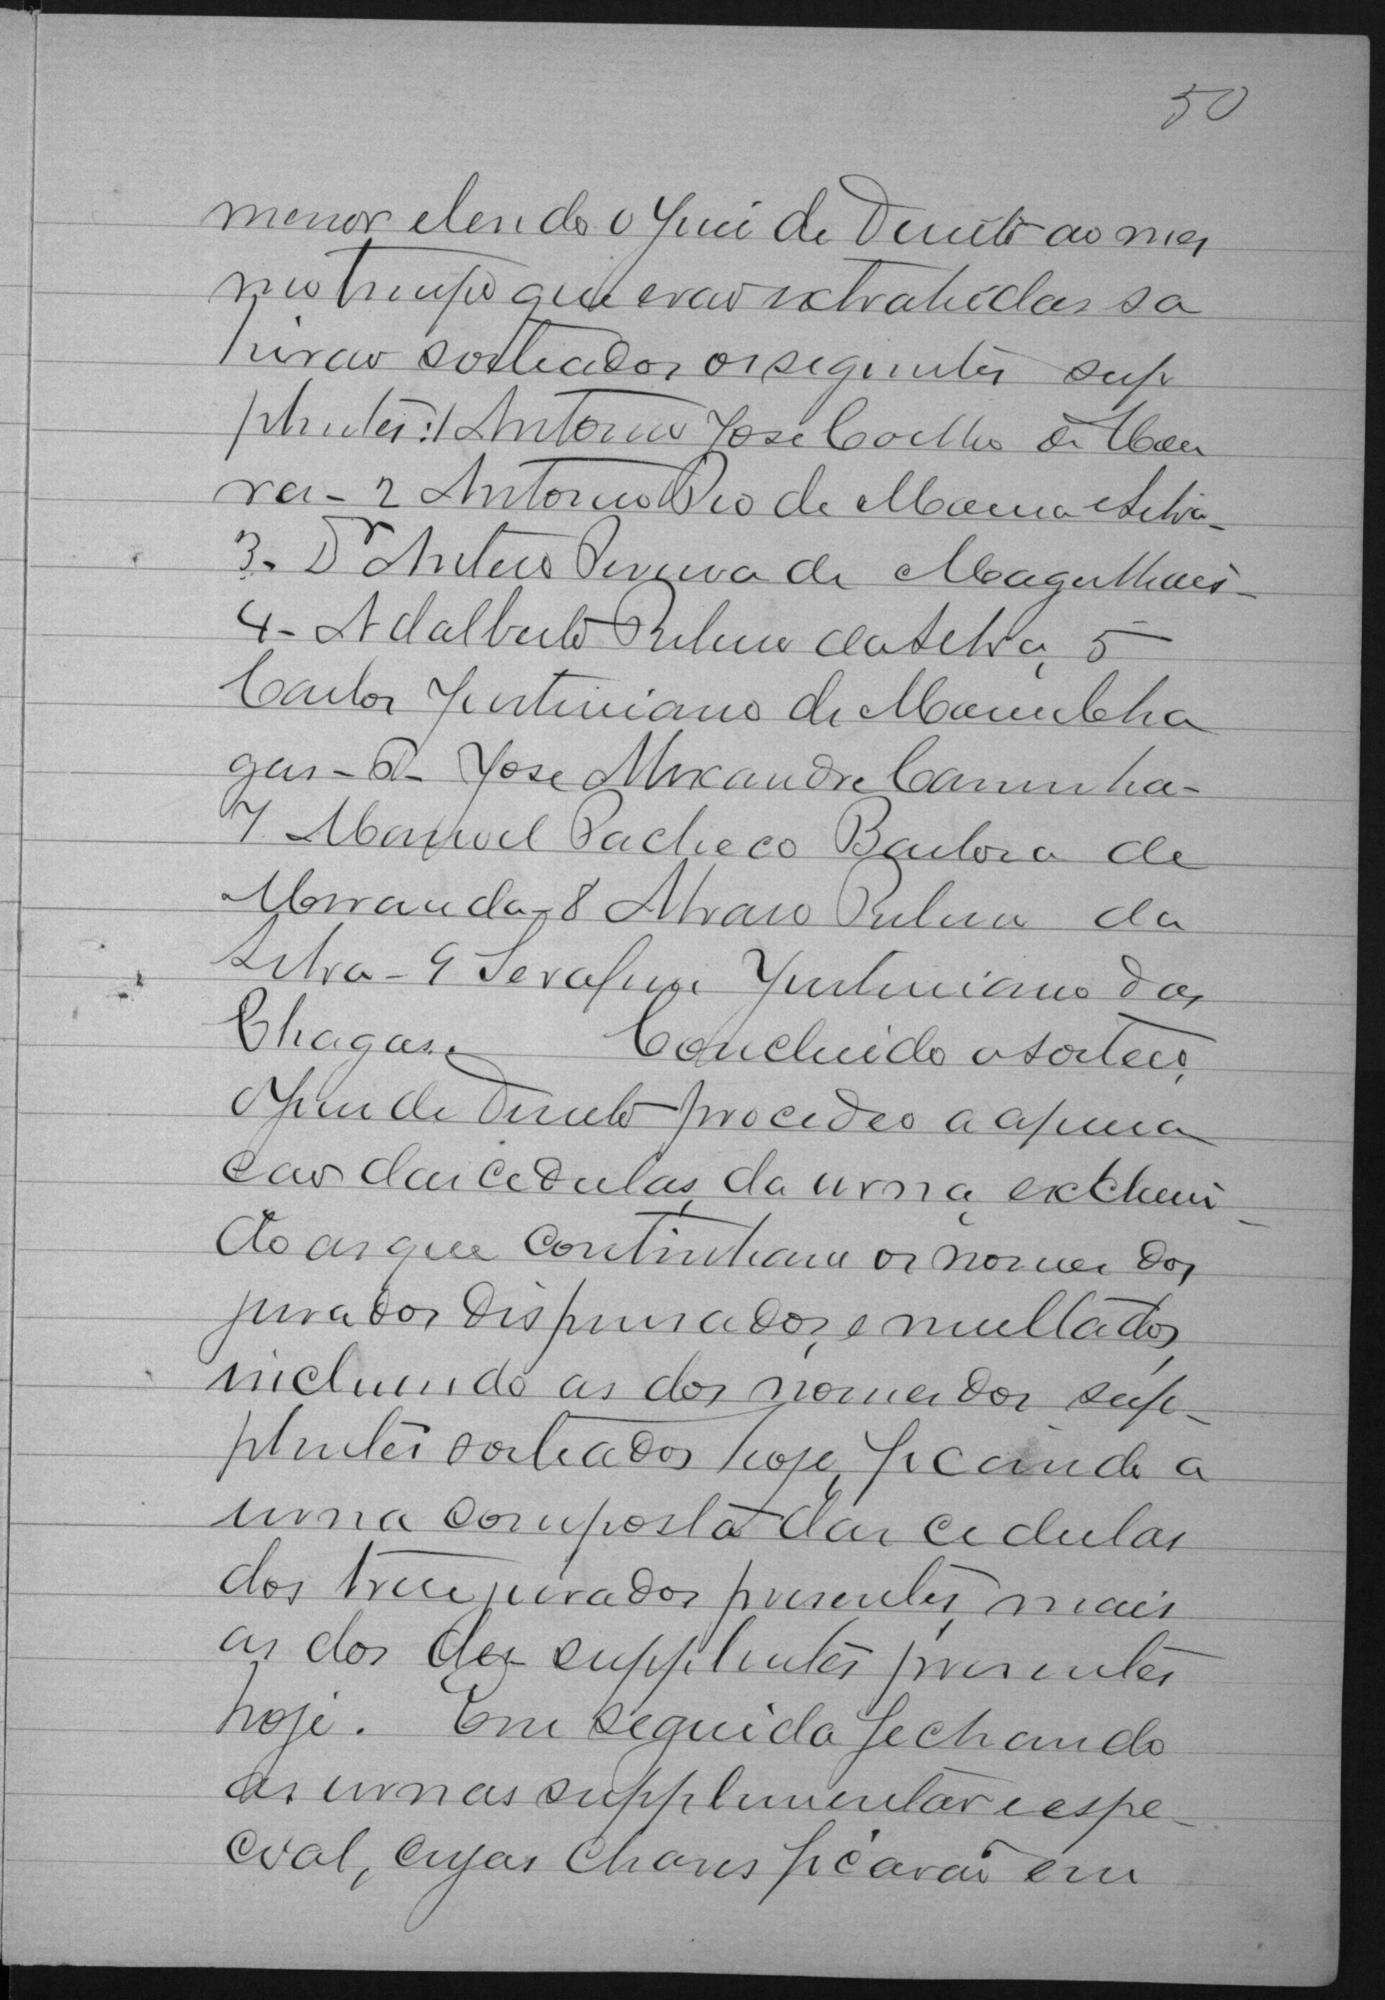 50
menor e lendo o Juiz de Direito ao mes
mo tempo que erao extrahidas sa
hirao sorteados os seguintes sup
plentes: 1 Antonio Jose Coelho de Mou
ra - 2 Antonio Pio de Moura e Silva -
3. Dr Antero Pereira de Magalhaes -
4 - Adalberto Rubino da Silva, 5
Carlos Justiniano de Moura Cha
gas - 6 - Jose Alexandre Caminha -
7 Manoel Pacheco Barbosa de
Miranda - 8 Alvaro Rubino da
Silva - 9 Serafim Justiniano das
Chagas. Concluido o sorteio,
o Juiz de Direito procedeo a apura
cao das cedulas da urna, exclui
do as que continham os nomes dos
jurados dispensados, e multados,
incluindo as dos nomes dos sup -
plentes sorteados hoje, ficando a
urna composta das cedulas
dos treze jurados presentes, mais
as dos dez supplentes presentes
hoje. Em seguida fechando
as urnas supplementar e espe -
cial, cujas chaves ficarao em